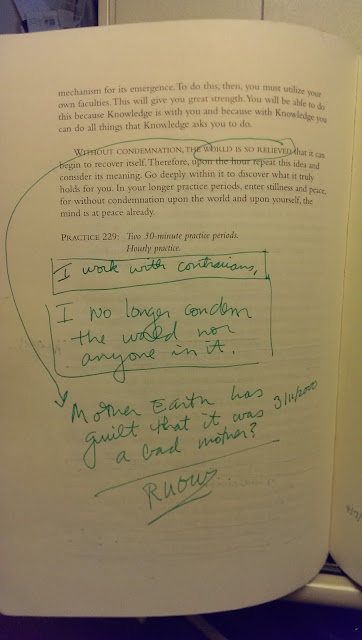 mechanism for its emergence. To do this, then, you must utilize your
own faculties. This will give you great strength. You will be able to do
this because Knowledge is with you and because with Knowledge you
can do all things that Knowledge asks you to do.
WITHOUT CONDEMNATION, THE WORLD IS SO RELIEVED that it can
begin to recover itself. Therefore, upon the hour repeat this idea and
consider its meaning. Go deeply within it to discover what it truly
holds for you. In your longer practice periods, enter stillness and peace,
for without condemnation upon the world and upon yourself, the
mind is at peace already.
PRACTICE 229: Two 30-minute practice periods.
Hourly practice.
I work with contrarians.
I no longer condem
the world nor
anyone in it.
Mother Earth has
3/11/2000
guilt that it was
a bad mother?